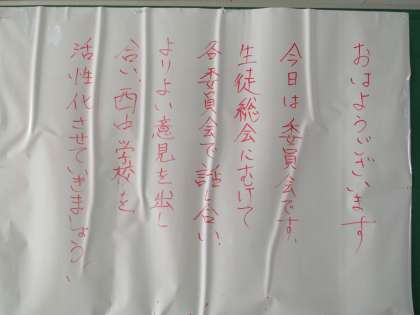 おはようございます
今日は委員会です。
生徒総会にむけて
各委員会で話し合い、
よりよい意見を出し
合い、西中学校を
活性化させていきましょう。